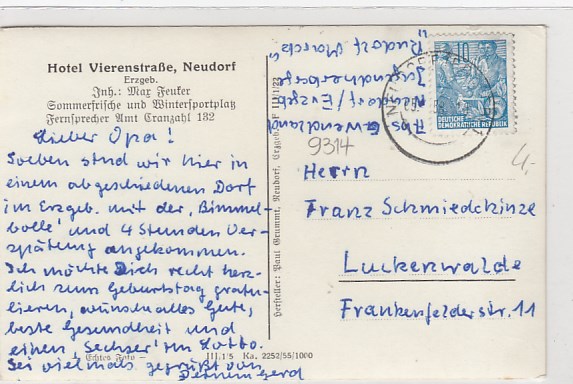 Hotel Vierenstraße, Neudorf
Erzgeb.
Inh.: Max Feuker
Sommerfrische und Wintersportplatz
Fernsprecher Amt Cranzahl 132
Lieber Opa!
Soeben sind wir hier in
einem abgeschiedenen Dorf
im Erzgeb. mit der „Bimmel-
bolle" und 4 Stunden Ver-
spätung angekommen.
Ich möchte Dich recht herz-
lich zum Geburtstag gratu-
lieren, wünsche alles Gute,
beste Gesundheit und
einen „Sechser" im Lotto.
Sei vielmals gegrüßt von
Deinem Gerd
Echtes Foto
III.1/5 Ka. 2252/55/1000
Hersteller: Paul Grummt, Neudorf, Erzgeb. F III/1/23
Abs. G. Wendland
Neudorf/Erzgeb.
Jugendherberge
"Rudolf Marek"
10
DEUTSCHE
DEMOKRATISCHE REPUBLIK
9314
4,-
Herrn
Franz Schmiedchinze
Luckenwalde
Frankenfelderstr. 11